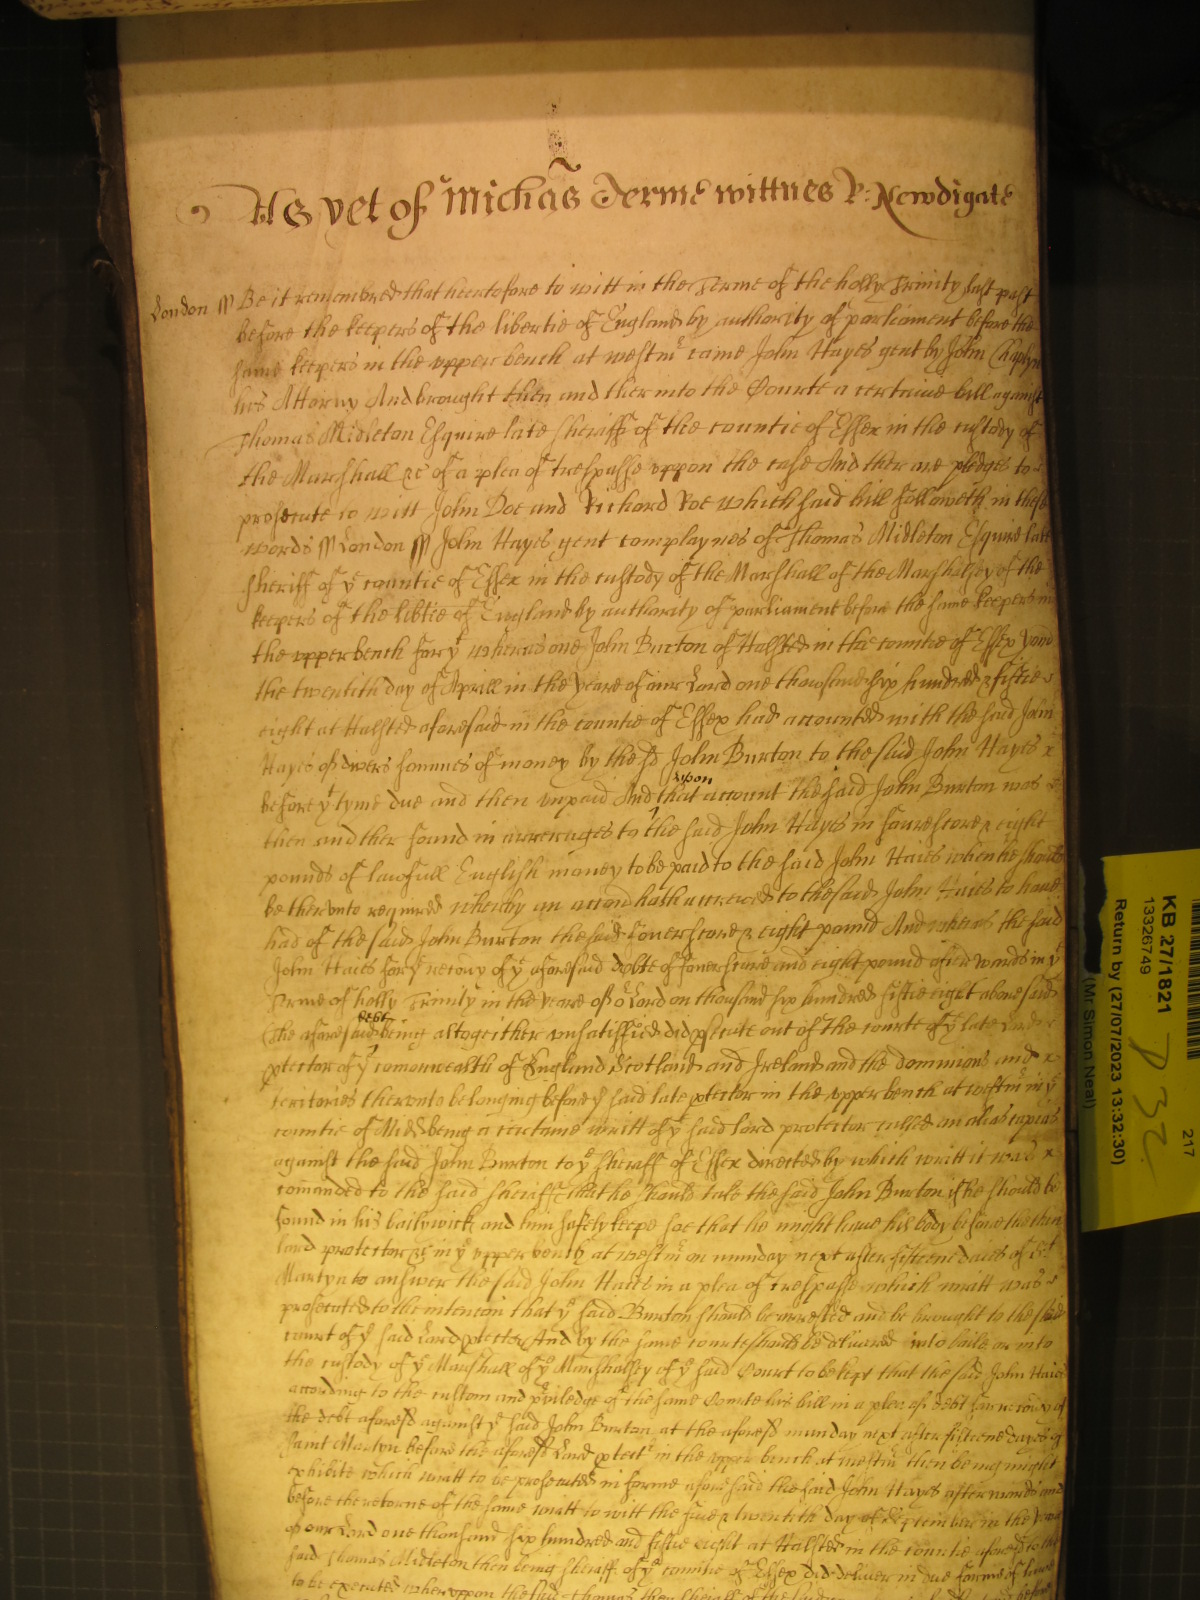 As yet of Michas Terme wittnes R: Newdigate
London ss Be it remembred that heertofore to witt in the Terme of the holly Trinity last past
before the keepers of the libertie of England by authority of parliament before the
same keepers in the upper bench at westmr came John Hayes gent by John Chaplyn
his Attorny And brought then and ther into the Courte a certaine bill against
Thomas Midleton Esquire late Sheriff of the countie of Essex in the custody of
the Marshall &c of a plea of trespasse uppon the case And ther are pledges to
prosecute to witt John Doe and Richard Roe which said bill followeth in these
words ss London ss John Hayes gent complaynes of Thomas Midleton Esquire late
Sheriff of ye countie of Essex in the custody of the Marshall of the Marshalsey of the
keepers of the libtie of England by authority of parliament before the same keepers in
the upper bench for yt wheras one John Burton of Halsted in the countie of Essex
the twentith day of Aprill in the yeare of our Lord one thowsand six hundred & fiftie
eight at Halsted aforesaid in the countie of Essex had accounted with the said John
Hayes of divers sommes of money by the sd John Burton to the said John Hayes
before yt tyme due and then unpaid And upon that account the said John Burton was
then and ther found in arrerages to the said John Hayes in fourescore & eight
pounds of lawfull English money to be paid to the said John Haies when he should
be therunto required wherby an accon hath accrewed to the said John Haies to have
had of the said John Burton the said fouerscore & eight pound And wheras the said
John Haies for ye recovy of ye aforesaid debte of fouerscore and eight pound afterwards in ye
Terme of holly Trinity in the yeare of or Lord on thousand six hundred fiftie eight abovesaid
(the aforesaid debt being altogeither unsatisfied) did psecute out of the courte of ye late Lord
ptector of ye comonwealth of England Scotland and Ireland and the dominions and
territories therunto belonging before ye said late ptector in the upper bench at westmr in ye
countie of Midd being a certaine writt of ye said lord protector called an alias capias
against the said John Burton to ye Sheriff of Essex directed by which writt it was
comanded to the said Sheriff that he should take the said John Burton if he should be
found in his bailywick and him safely keepe soe that he might have his body before the then
lord protector &c in ye upper bench at westmr on munday next after fifteene daies of St
Martyn to answer the said John Haies in a plea of trespasse which writt was
prosecuted to the intencon that ye said Burton should be arrested and be brought to the said
court of ye said Lord ptector And by the same courte should be delivered into baile or into
the custody of ye Marshall of ye Marshalsey of ye said Court to be kept that the said John Haies
according to the custom and priviledge of the same Courte his bill in a plea of debt for recovy of
the debt aforesd against ye said John Burton at the aforesd munday next after fifteene dayes of
Saint Martyn before the aforesd Lord ptectr in the upper bench at westmr then being might
exhibite which writt to be prosecuted in forme aforesaid the said John Hayes afterwards and
before the retorne of the same writt to witt the five & twentith day of September in the yeare
of our Lord one thousand six hundred and fiftie eight at Halsted in the countie aforesd to the
said Thomas Midleton then being Sheriff of ye countie of Essex did deliver in due forme of lawe
to be executed wherupon the said Thomas then Sheriff of the
KB 27/1821
13326749
Return by (27/07/2023 13:32:30)
(Mr Simon Neal)
2117